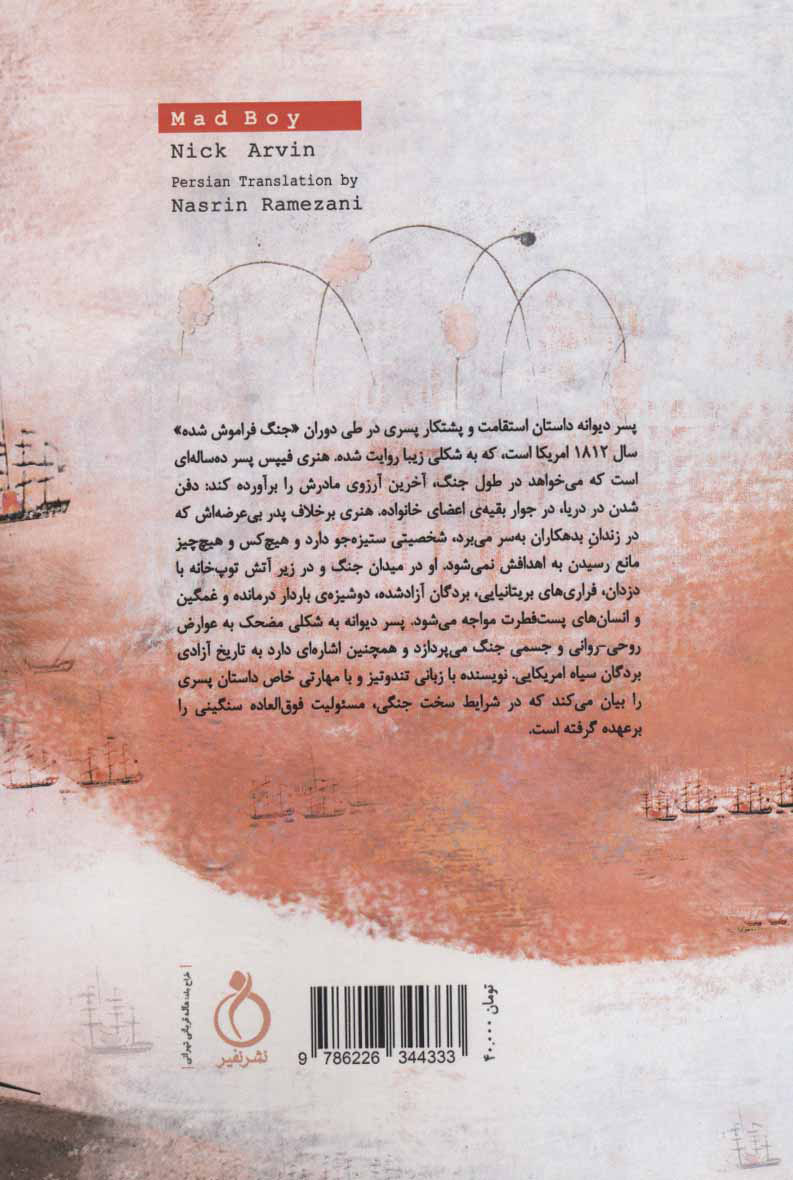 Mad Boy
Nick Arvin
Persian Translation by
Nasrin Ramezani
پسر دیوانه داستان استقامت و پشتکار پسری در طی دوران «جنگ فراموش شده»
سال ۱۸۱۲ امریکا است، که به شکلی زیبا روایت شده. هنری فیپس پسر ده‌ساله‌ای
است که می‌خواهد در طول جنگ، آخرین آرزوی مادرش را برآورده کند: دفن
شدن در دریا، در جوار بقیه‌ی اعضای خانواده. هنری برخلاف پدر بی‌عرضه‌اش که
در زندانِ بدهکاران به‌سر می‌برد، شخصیتی ستیزه‌جو دارد و هیچ‌کس و هیچ‌چیز
مانع رسیدن به اهدافش نمی‌شود. او در میدان جنگ و در زیر آتش توپ‌خانه با
دزدان، فراری‌های بریتانیایی، بردگان آزادشده، دوشیزه‌ی باردار درمانده و غمگین
و انسان‌های پست‌فطرت مواجه می‌شود. پسر دیوانه به شکلی مضحک به عوارض
روحی-روانی و جسمی جنگ می‌پردازد و همچنین اشاره‌ای دارد به تاریخ آزادی
بردگان سیاه امریکایی. نویسنده با زبانی تندوتیز و با مهارتی خاص داستان پسری
را بیان می‌کند که در شرایط سخت جنگی، مسئولیت فوق‌العاده سنگینی را
برعهده گرفته است.
طراح جلد: هاله قربانی تهرانی
نشر نفیر
9 786226 344333
۴۰,۰۰۰ تومان